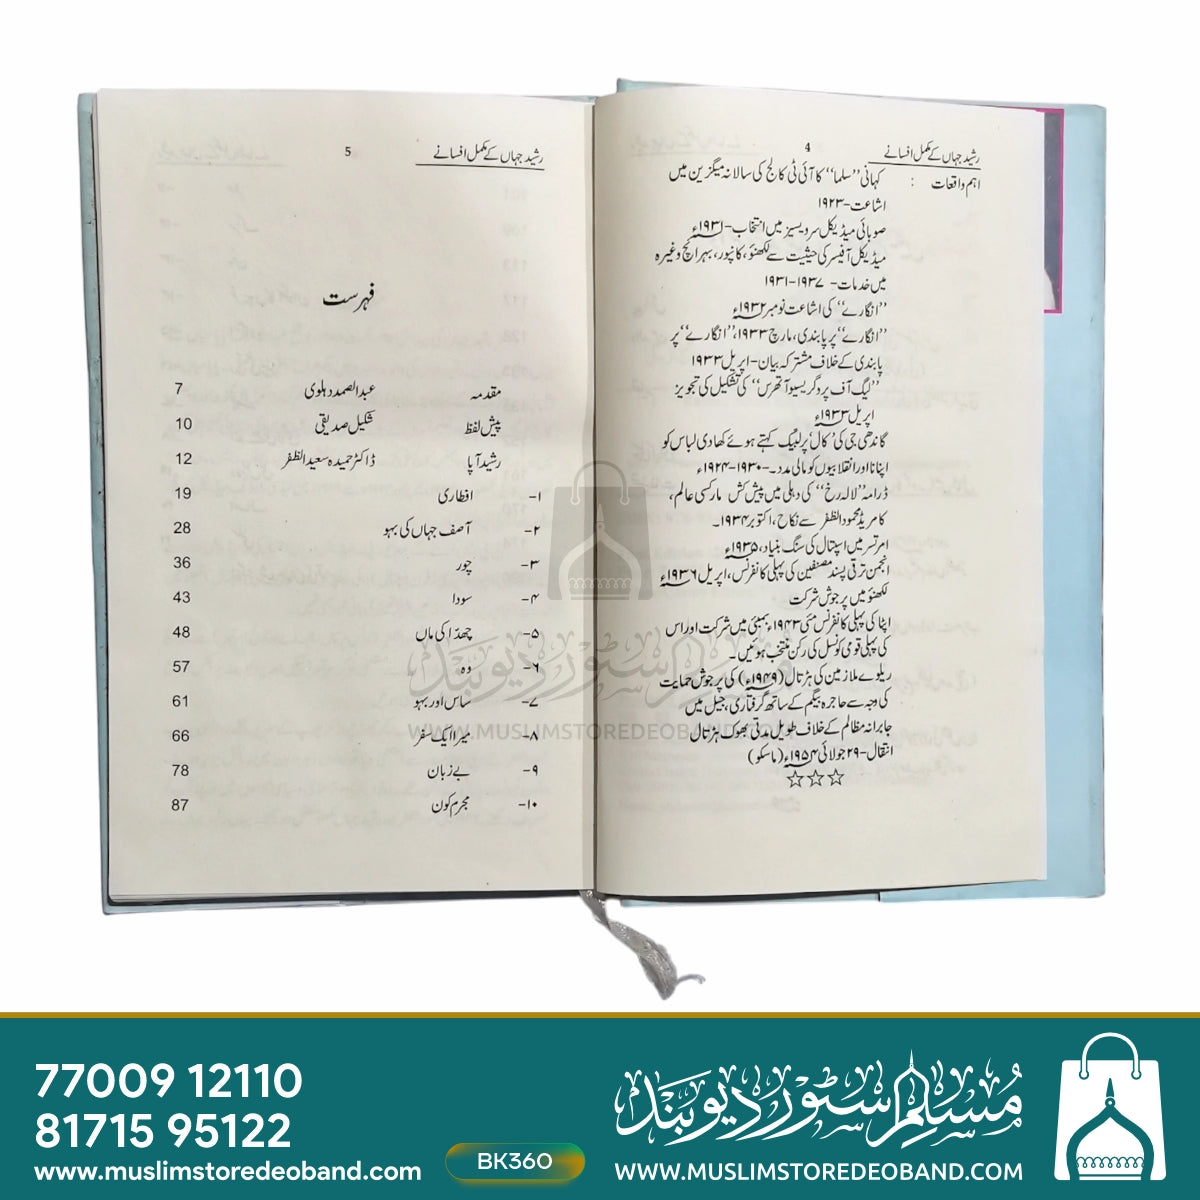 رشید جہاں کے مکمل افسانے
4
اہم واقعات :
کہانی ”سلما“ کا آئی ٹی کالج کی سالانہ میگزین میں
اشاعت-۱۹۲۳
صوبائی میڈیکل سرویسیز میں انتخاب-۱۹۳۱ء
میڈیکل آفیسر کی حیثیت سے لکھنؤ، کانپور، بہرائچ وغیرہ
میں خدمات- ۱۹۳۷-۱۹۳۱
”انگارے“ کی اشاعت نومبر ۱۹۳۲ء
”انگارے“ پر پابندی، مارچ ۱۹۳۳، ”انگارے“ پر
پابندی کے خلاف مشترکہ بیان-اپریل ۱۹۳۳
”لیگ آف پروگریسیو آتھرس“ کی تشکیل کی تجویز
اپریل ۱۹۳۳ء
گاندھی جی کی ’کال‘ پر لبیک کہتے ہوئے کھادی لباس کو
اپنانا اور انقلابیوں کو مالی مدد۔-۱۹۳۰-۱۹۲۴ء
ڈرامہ ”لالہ رخ“ کی دہلی میں پیش کش مارکسی عالم،
کامریڈ محمود الظفر سے نکاح، اکتوبر ۱۹۳۴۔
امرتسر میں اسپتال کی سنگ بنیاد، ۱۹۳۵ء
انجمن ترقی پسند مصنفین کی پہلی کانفرنس، اپریل ۱۹۳۶ء
لکھنؤ میں پر جوش شرکت
اپٹا کی پہلی کانفرنس مئی ۱۹۴۳ء بمبئی میں شرکت اور اس
کی پہلی قومی کونسل کی رکن منتخب ہوئیں۔
ریلوے ملازمین کی ہڑتال (۱۹۴۹ء) کی پر جوش حمایت
کی وجہ سے حاجرہ بیگم کے ساتھ گرفتاری، جیل میں
جابرانہ مظالم کے خلاف طویل مدتی بھوک ہڑتال
انتقال-۲۹ جولائی ۱۹۵۴ء (ماسکو)
☆☆☆
رشید جہاں کے مکمل افسانے
5
فہرست
مقدمہ عبدالصمد دہلوی 7
پیش لفظ شکیل صدیقی 10
رشید آپا ڈاکٹر حمیدہ سعید الظفر 12
۱- افطاری 19
۲- آصف جہاں کی بہو 28
۳- چور 36
۴- سودا 43
۵- چھدا کی ماں 48
۶- وہ 57
۷- ساس اور بہو 61
۸- میرا ایک سفر 66
۹- بے زبان 78
۱۰- مجرم کون 87
مسلم سٹور دیوبند
WWW.MUSLIMSTOREDEOBAND
77009 12110
81715 95122
www.muslimstoredeoband.com
BK360
مسلم سٹور دیوبند
WWW.MUSLIMSTOREDEOBAND.COM